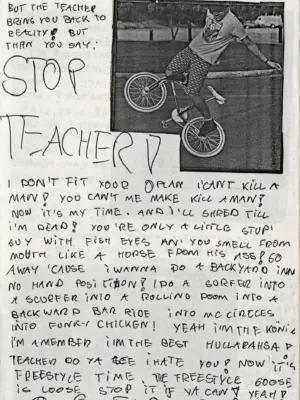 BUT THE TEACHER
BRING YOU BACK TO
REALITY! BUT
THAN YOU SAY:
STOP
TEACHER!
I DON'T FIT YOUR PLAN I CAN'T KILL A
MAN! YOU CAN'T ME MAKE KILL A MAN!
NOW IT'S MY TIME. AND I'LL SHRED TILL
I'M DEAD! YOU'RE ONLY A LITTLE STUPI
GUY WITH FISH EYES AN' YOU SMELL FROM
MOUTH LIKE A HORSE FROM HIS ASS! GO
AWAY 'CAUSE I WANNA DO A BACKYARD INN
NO HAND POSITION! I DO A SURFER INTO
A SCURFER INTO A ROLLING DOOM INTO A
BACKWARD BAR RIDE INTO MC CIRCLES
INTO FUNKY CHICKEN! YEAH I'M THE KONIG
I'M A MEMBER I'M THE BEST HULLARAHSA!
TEACHER DO YA SEE I HATE YOU! NOW IT'S
FREESTYLE TIME. THE FREESTYLE GOOSE
IS LOOSE STOP IT IF YA CAN! YEAH!